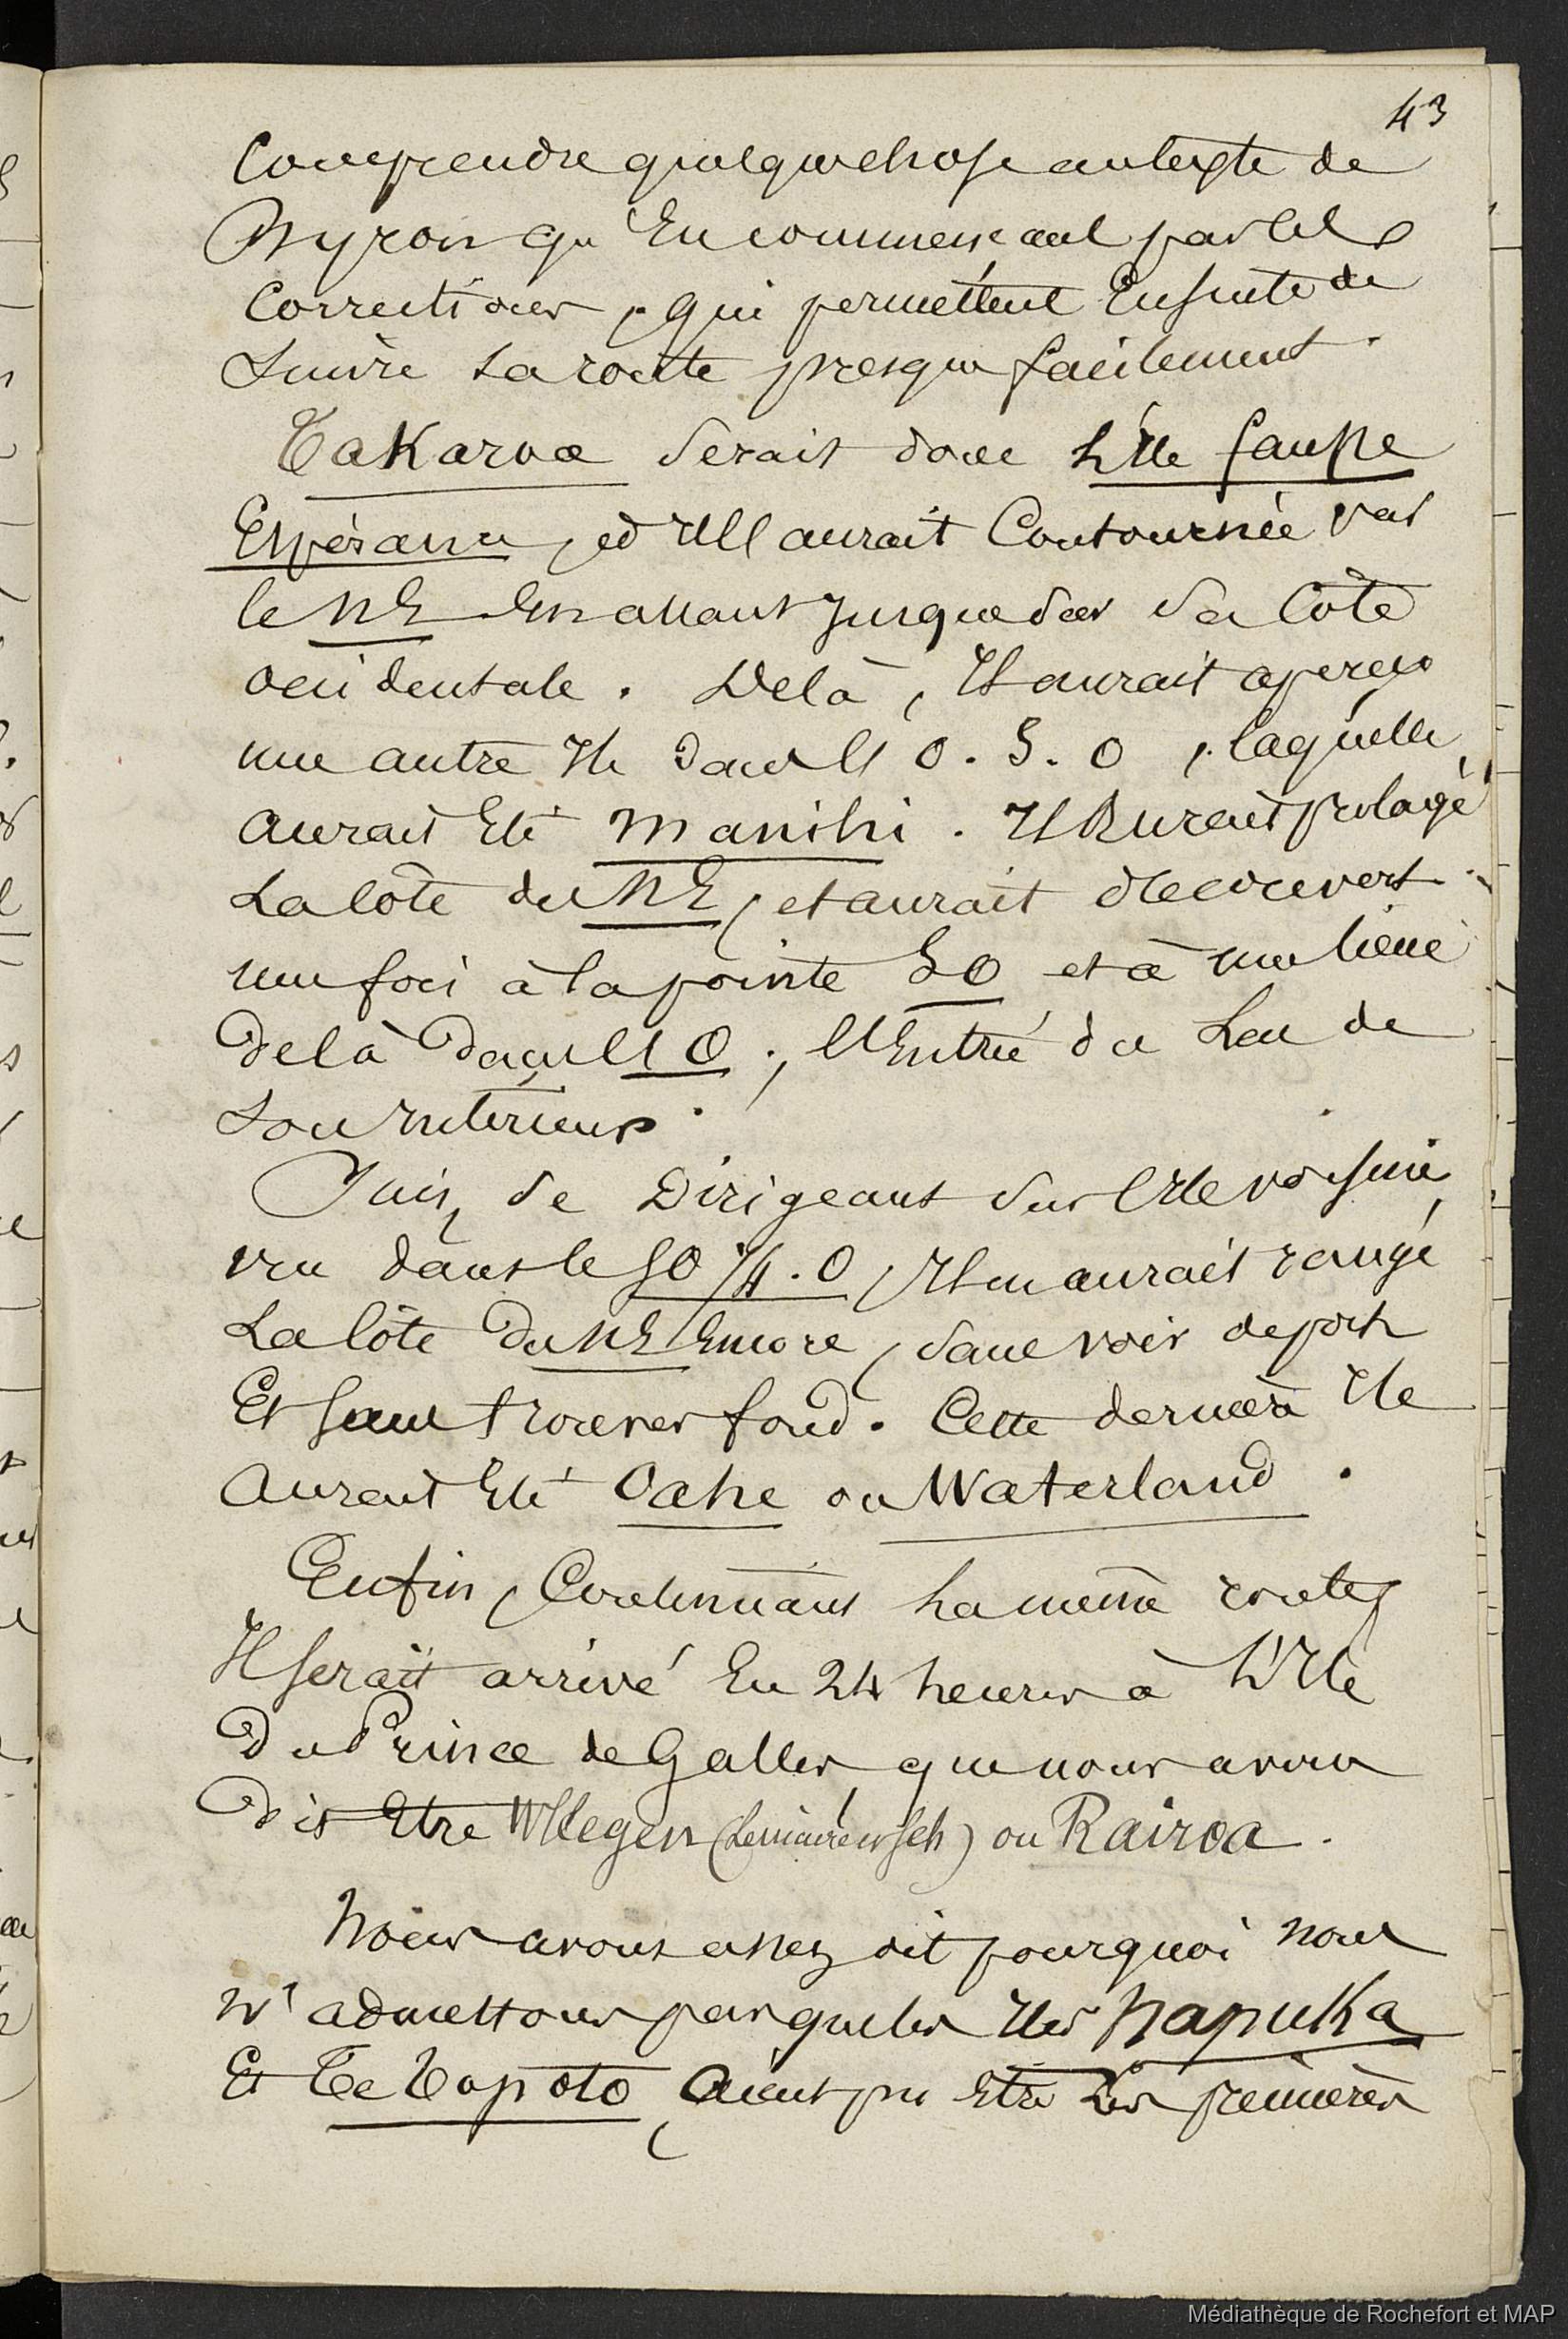 43
Comprendre quelque chose au texte de
Byron qu'En commençant par les
Corrections, qui permettent Ensuite de
Suivre sa route presque facilement.
Takaroa serait donc L'Ile fausse
Espérance, et Il l'aurait Contournée par
le NE En allant jusque sur sa Côte
occidentale. De là, Il aurait aperçu
une autre Ile dans l'O.S.O, laquelle
aurait Eté Manihi. Il Aurait prolongé
La Côte du NE, et aurait découvert
une fois à la pointe SO et à une lieue
de là dans l'O, l'Entrée du Lac de
Son Intérieur.
Puis, se Dirigeant sur l'Ile voisine,
vue dans le SO 1/4.O, Il en aurait rangé
La Côte du NE Encore, sans voir de port
Et Sans trouver fond. Cette dernière Ile
Aurait Eté Oahe ou Waterland.
Enfin, Continuant La même route,
Il serait arrivé En 24 heures à L'Ile
Du Prince de Galles, que nous avons
Dit Etre Vliegen (Lemaire et Sch) ou Rairoa.
Nous avons assez dit pourquoi nous
N'admettons pas que les Iles Napuka
Et Te Topoto, Aient pu Etre Les premières
Médiathèque de Rochefort et MAP